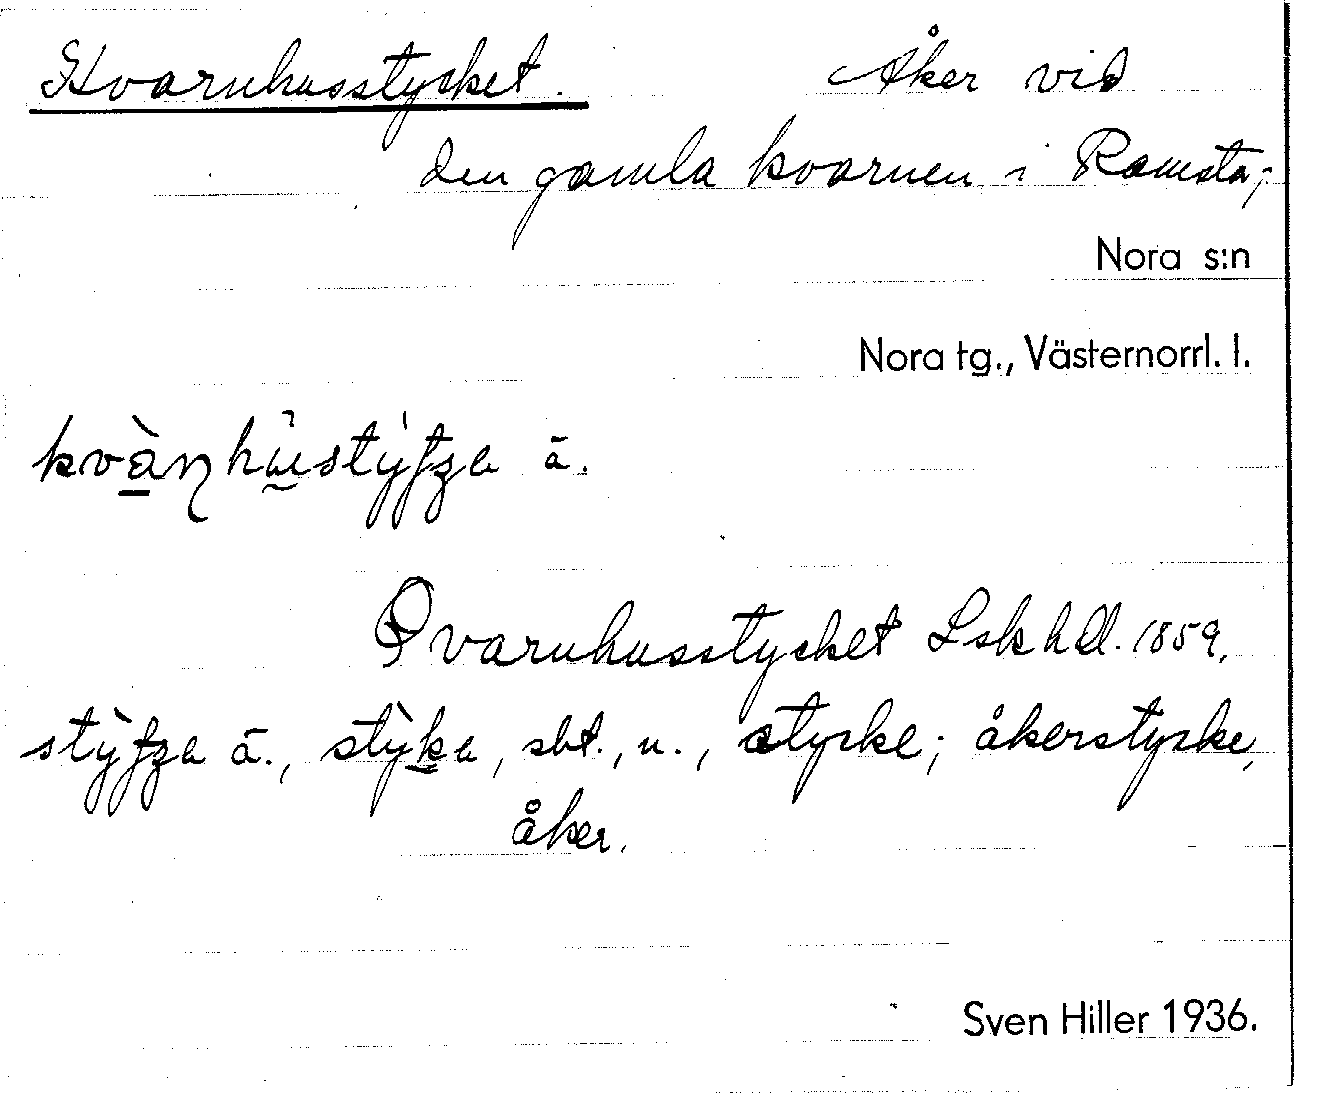 Kvarnhusstycket. Åker vid
den gamla kvarnen i Ramsta;
Nora s:n
Nora tg., Västernorrl. l.
ā.
Qvarnhusstycket Lskhdl. 1859.
ā., sbt., n., stycke; åkerstycke,
åker.
Sven Hiller 1936.